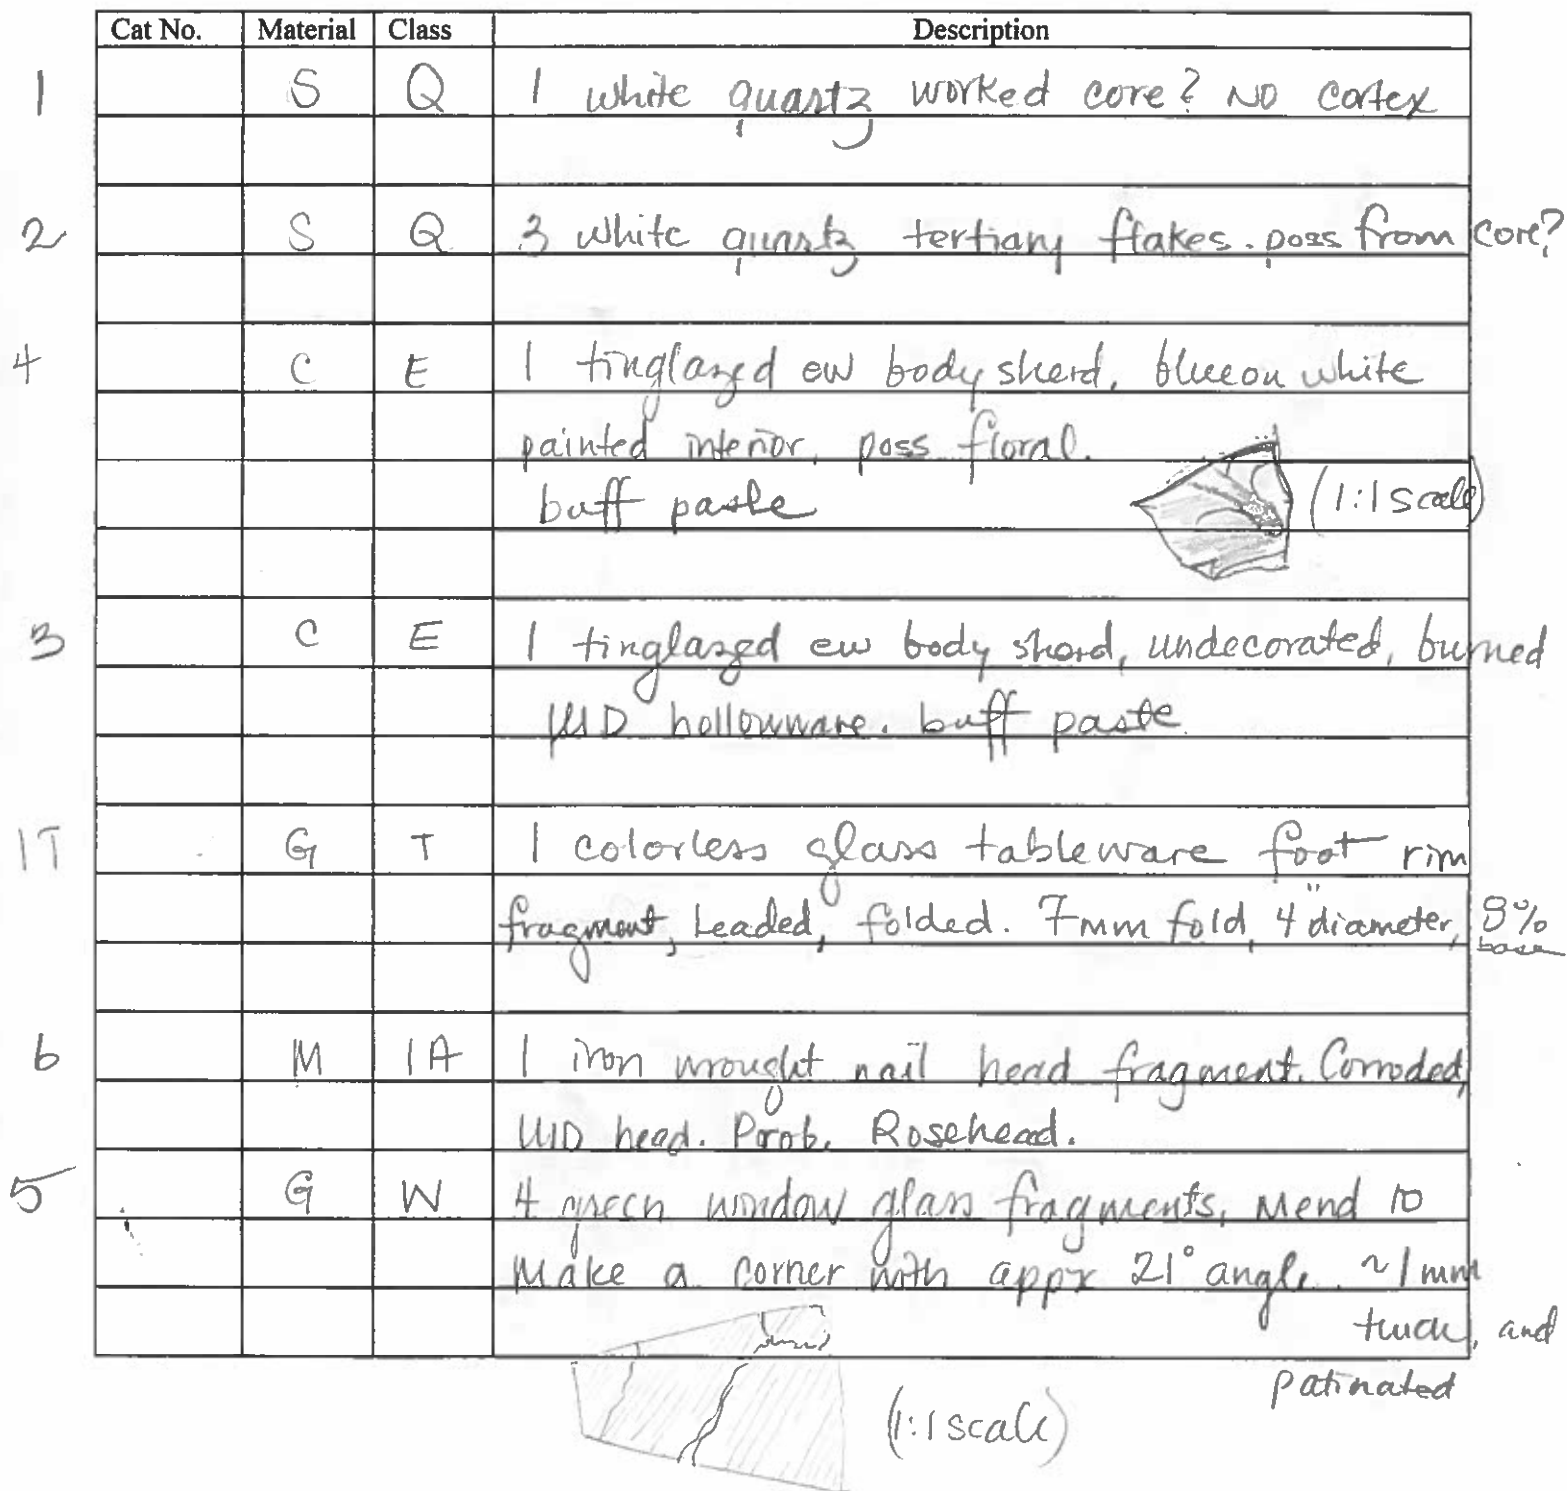 Cat No. Material Class Description
1 S Q 1 white quartz worked core? NO cortex
2 S Q 3 white quartz tertiary flakes. poss from core?
4 C E 1 tinglazed ew body sherd, blue on white
painted interior, poss floral.
buff paste (1:1 scale)
3 C E 1 tinglazed ew body sherd, undecorated, burned
UID hollowware. buff paste
1T G T 1 colorless glass tableware foot rim
fragment, Leaded, folded. 7mm fold, 4" diameter, 8%
base
6 M IA 1 iron wrought nail head fragment. Corroded,
UID head. Prob. Rosehead.
5 G W 4 green window glass fragments, Mend to
Make a corner with appx 21° angle. ~1mm
thick, and
patinated
(1:1 scale)